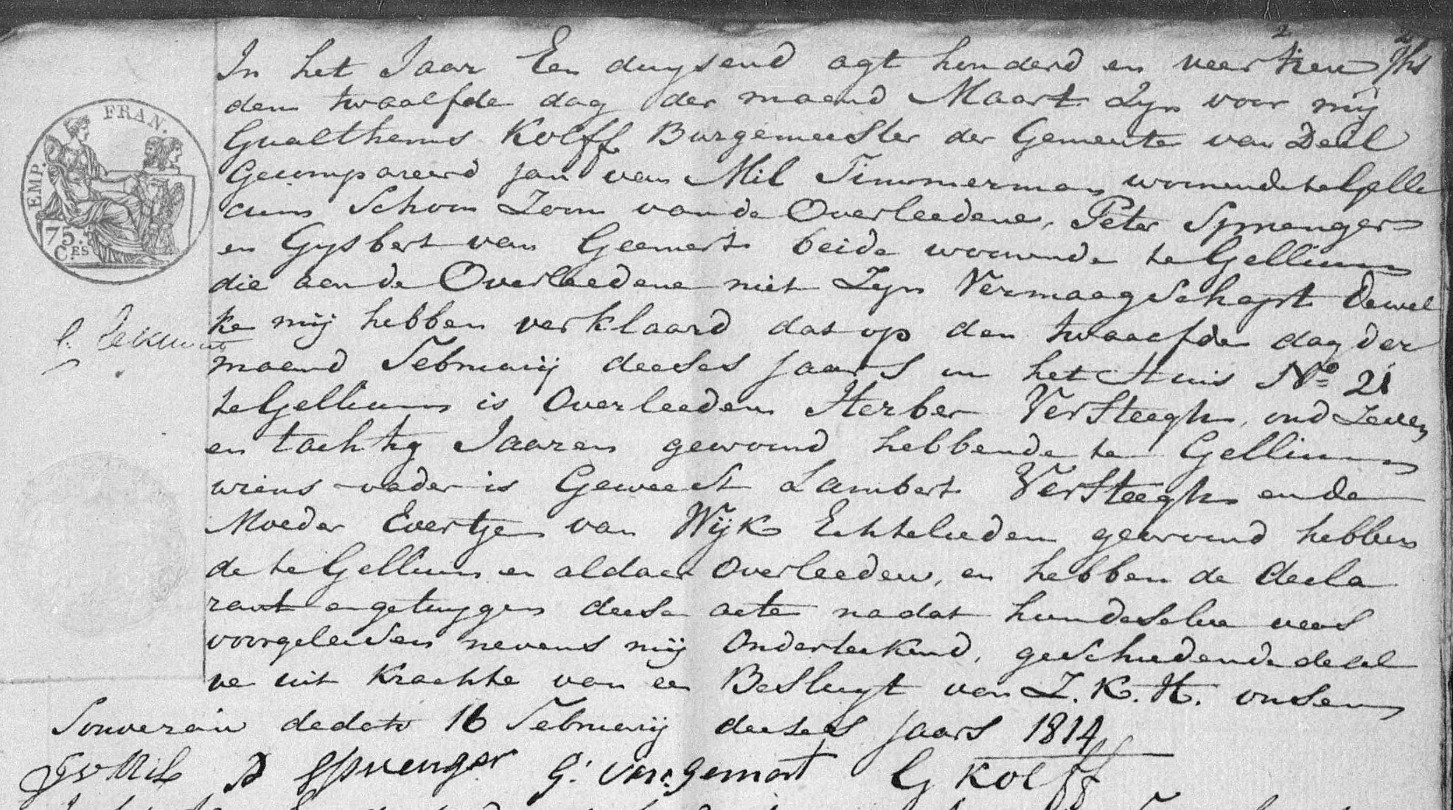 2 2
In het Jaar Een duysend agt honderd en veertien
den twaalfde dag der maand Maart Zyn voor mij
Gualtherus Kolff Burgemeester der Gemeente van Deil
Gecompareerd Jan van Mil Timmerman woonende te Gelle
cum Schoon Zoon van de Overleedene, Peter Sprenger
en Gysbert van Geemert beide woonende te Gellicum
die aan de Overleedene niet Zyn Vermaagschapt dewel
ke mij hebben verklaard dat op den twaalfden dag der
maand Februarij deeses Jaars in het Huis No 21
te Gellicum is Overleeden Herber Versteegh, oud Zeven
en tachtig Jaaren gewoond hebbende te Gellicum
wiens vader is Geweest Lambert Versteegh en de
Moeder Evertje van Wijk Echtelieden gewoond hebben
de te Gellicum en aldaar Overleeden, en hebben de decla
rant en getuygen deese acte nadat hun deselve was
voorgeleesen nevens mij Onderteekend, geschiedende desel
ve uit krachte van een Besluyt van Z.K.H. onsen
Souverain de dato 16 Februarij deeses Jaars 1814
J v Mil P Sprenger G. van gemert G Kolff
EMP. FRAN.
75.
C.ES